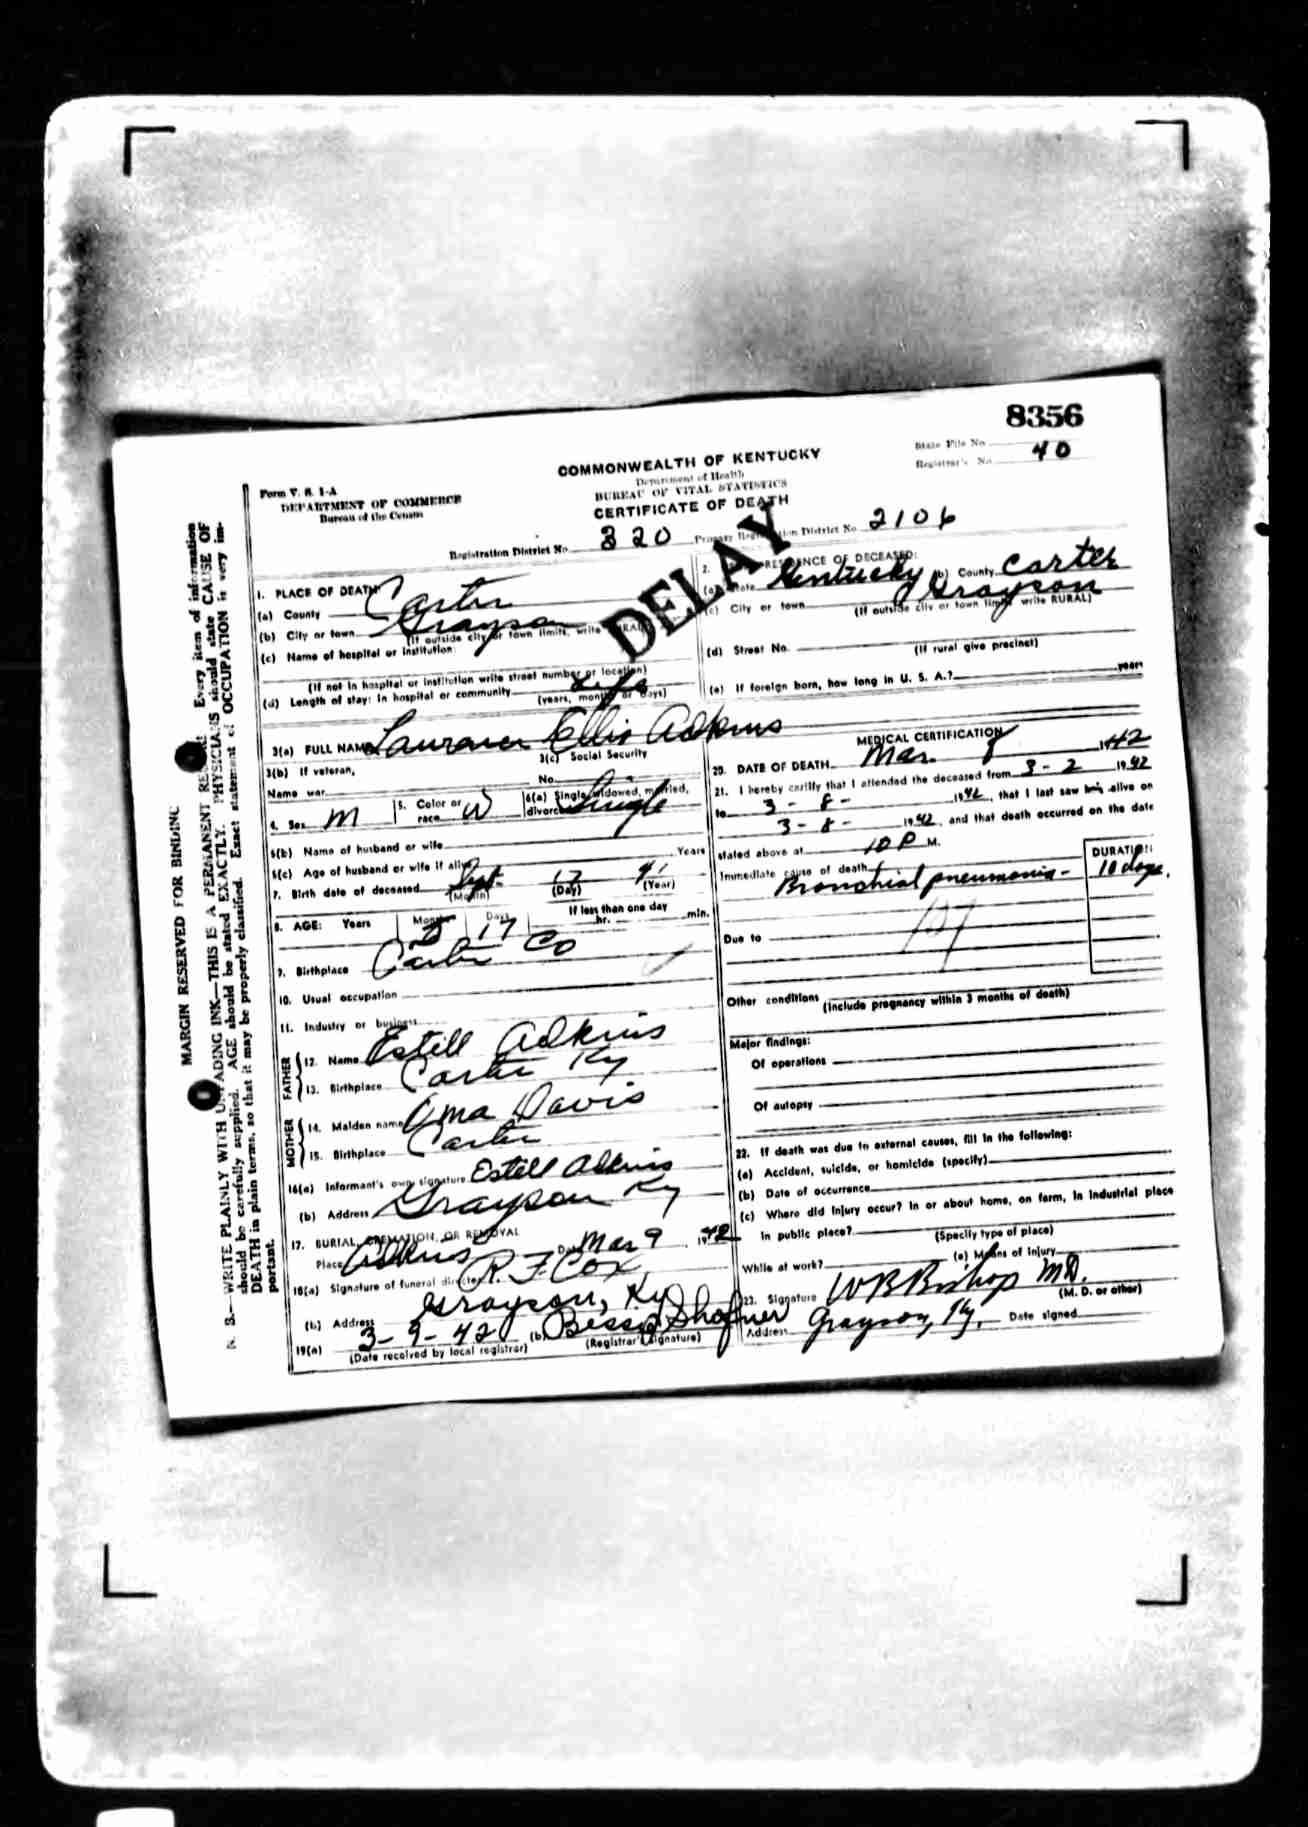 8356
State File No.
Registrar's No. 40
Form V. S. 1-A
DEPARTMENT OF COMMERCE
Bureau of the Census
COMMONWEALTH OF KENTUCKY
Department of Health
BUREAU OF VITAL STATISTICS
CERTIFICATE OF DEATH
Registration District No. 320
Primary Registration District No. 2106
DELAY
MARGIN RESERVED FOR BINDING
N. B.—WRITE PLAINLY WITH UNFADING INK—THIS IS A PERMANENT RECORD. Every item of information
should be carefully supplied. AGE should be stated EXACTLY. PHYSICIANS should state CAUSE OF
DEATH in plain terms, so that it may be properly classified. Exact statement of OCCUPATION is very im-
portant.
1. PLACE OF DEATH
(a) County Carter
(b) City or town Grayson
(If outside city or town limits, write RURAL)
(c) Name of hospital or institution:
(If not in hospital or institution write street number or location)
(d) Length of stay: In hospital or community Life
(years, months or days)
2. RESIDENCE OF DECEASED:
(a) State Kentucky (b) County Carter
(c) City or town Grayson
(If outside city or town limits write RURAL)
(d) Street No.
(If rural give precinct)
(e) If foreign born, how long in U. S. A.? years
3(a) FULL NAME Ellis Adkins
3(b) If veteran,
Name war
3(c) Social Security
No.
4. Sex M
5. Color or race W
6(a) Single, widowed, married, divorced Single
6(b) Name of husband or wife
6(c) Age of husband or wife if alive Years
7. Birth date of deceased Sept 17 41
(Month) (Day) (Year)
8. AGE: Years Months 5 Days 17 If less than one day
hr. min.
9. Birthplace Carter Co
10. Usual occupation
11. Industry or business
FATHER
12. Name Estill Adkins
13. Birthplace Carter Ky
MOTHER
14. Maiden name Oma Davis
15. Birthplace Carter
16(a) Informant's own signature Estill Adkins
(b) Address Grayson Ky
17. BURIAL, CREMATION, OR REMOVAL
Place Adkins Date Mar 9 1942
18(a) Signature of funeral director R. F. Cox
(b) Address Grayson, Ky
19(a) 3-9-42 (b) Bessie Shafner
(Date received by local registrar) (Registrar's signature)
MEDICAL CERTIFICATION
20. DATE OF DEATH Mar. 8 1942
21. I hereby certify that I attended the deceased from 3-2 1942
to 3-8- 1942, that I last saw him alive on
3-8- 1942, and that death occurred on the date
stated above at 10 P M.
Immediate cause of death
Bronchial pneumonia -
DURATION
10 days.
Due to
107
Other conditions
(Include pregnancy within 3 months of death)
Major findings:
Of operations
Of autopsy
22. If death was due to external causes, fill in the following:
(a) Accident, suicide, or homicide (specify)
(b) Date of occurrence
(c) Where did injury occur? In or about home, on farm, in industrial place
in public place?
(Specify type of place)
While at work? (e) Means of injury
23. Signature W B Bishop M.D.
(M. D. or other)
Address Grayson, Ky. Date signed